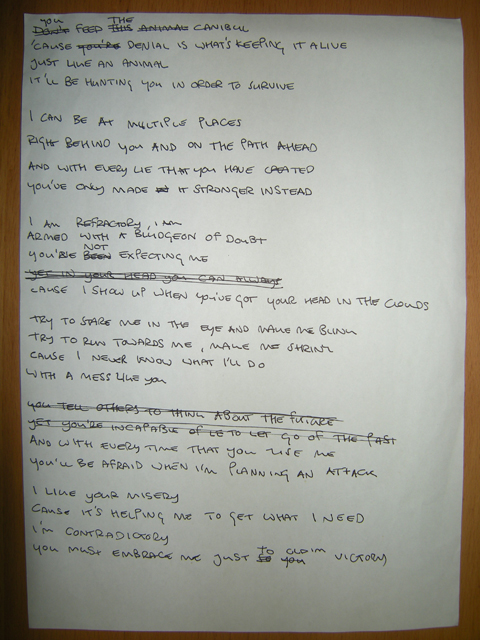 you THE
Don't FEED THIS ANIMAL CANIBUL
'CAUSE you're DENIAL IS WHAT'S KEEPING IT ALIVE
JUST LIKE AN ANIMAL
IT'LL BE HUNTING YOU IN ORDER TO SURVIVE
I CAN BE AT MULTIPLE PLACES
RIGHT BEHIND YOU AND ON THE PATH AHEAD
AND WITH EVERY LIE THAT YOU HAVE CREATED
YOU'VE ONLY MADE IT STRONGER INSTEAD
I AM REFRACTORY, I AM
ARMED WITH A BLUDGEON OF DOUBT
NOT
YOU'RE BEEN EXPECTING ME
YET IN YOUR HEAD YOU CAN ALWAYS
CAUSE I SHOW UP WHEN YOU'VE GOT YOUR HEAD IN THE CLOUDS
TRY TO STARE ME IN THE EYE AND MAKE ME BLINK
TRY TO RUN TOWARDS ME, MAKE ME SHRINK
CAUSE I NEVER KNOW WHAT I'LL DO
WITH A MESS LIKE YOU
YOU TELL OTHERS TO THINK ABOUT THE FUTURE
YET YOU'RE INCAPABLE OF LE TO LET GO OF THE PAST
AND WITH EVERY TIME THAT YOU USE ME
YOU'LL BE AFRAID WHEN I'M PLANNING AN ATTACK
I LIKE YOUR MISERY
CAUSE IT'S HELPING ME TO GET WHAT I NEED
I'M CONTRADICTORY
TO CLAIM
YOU MUST EMBRACE ME JUST you VICTORY